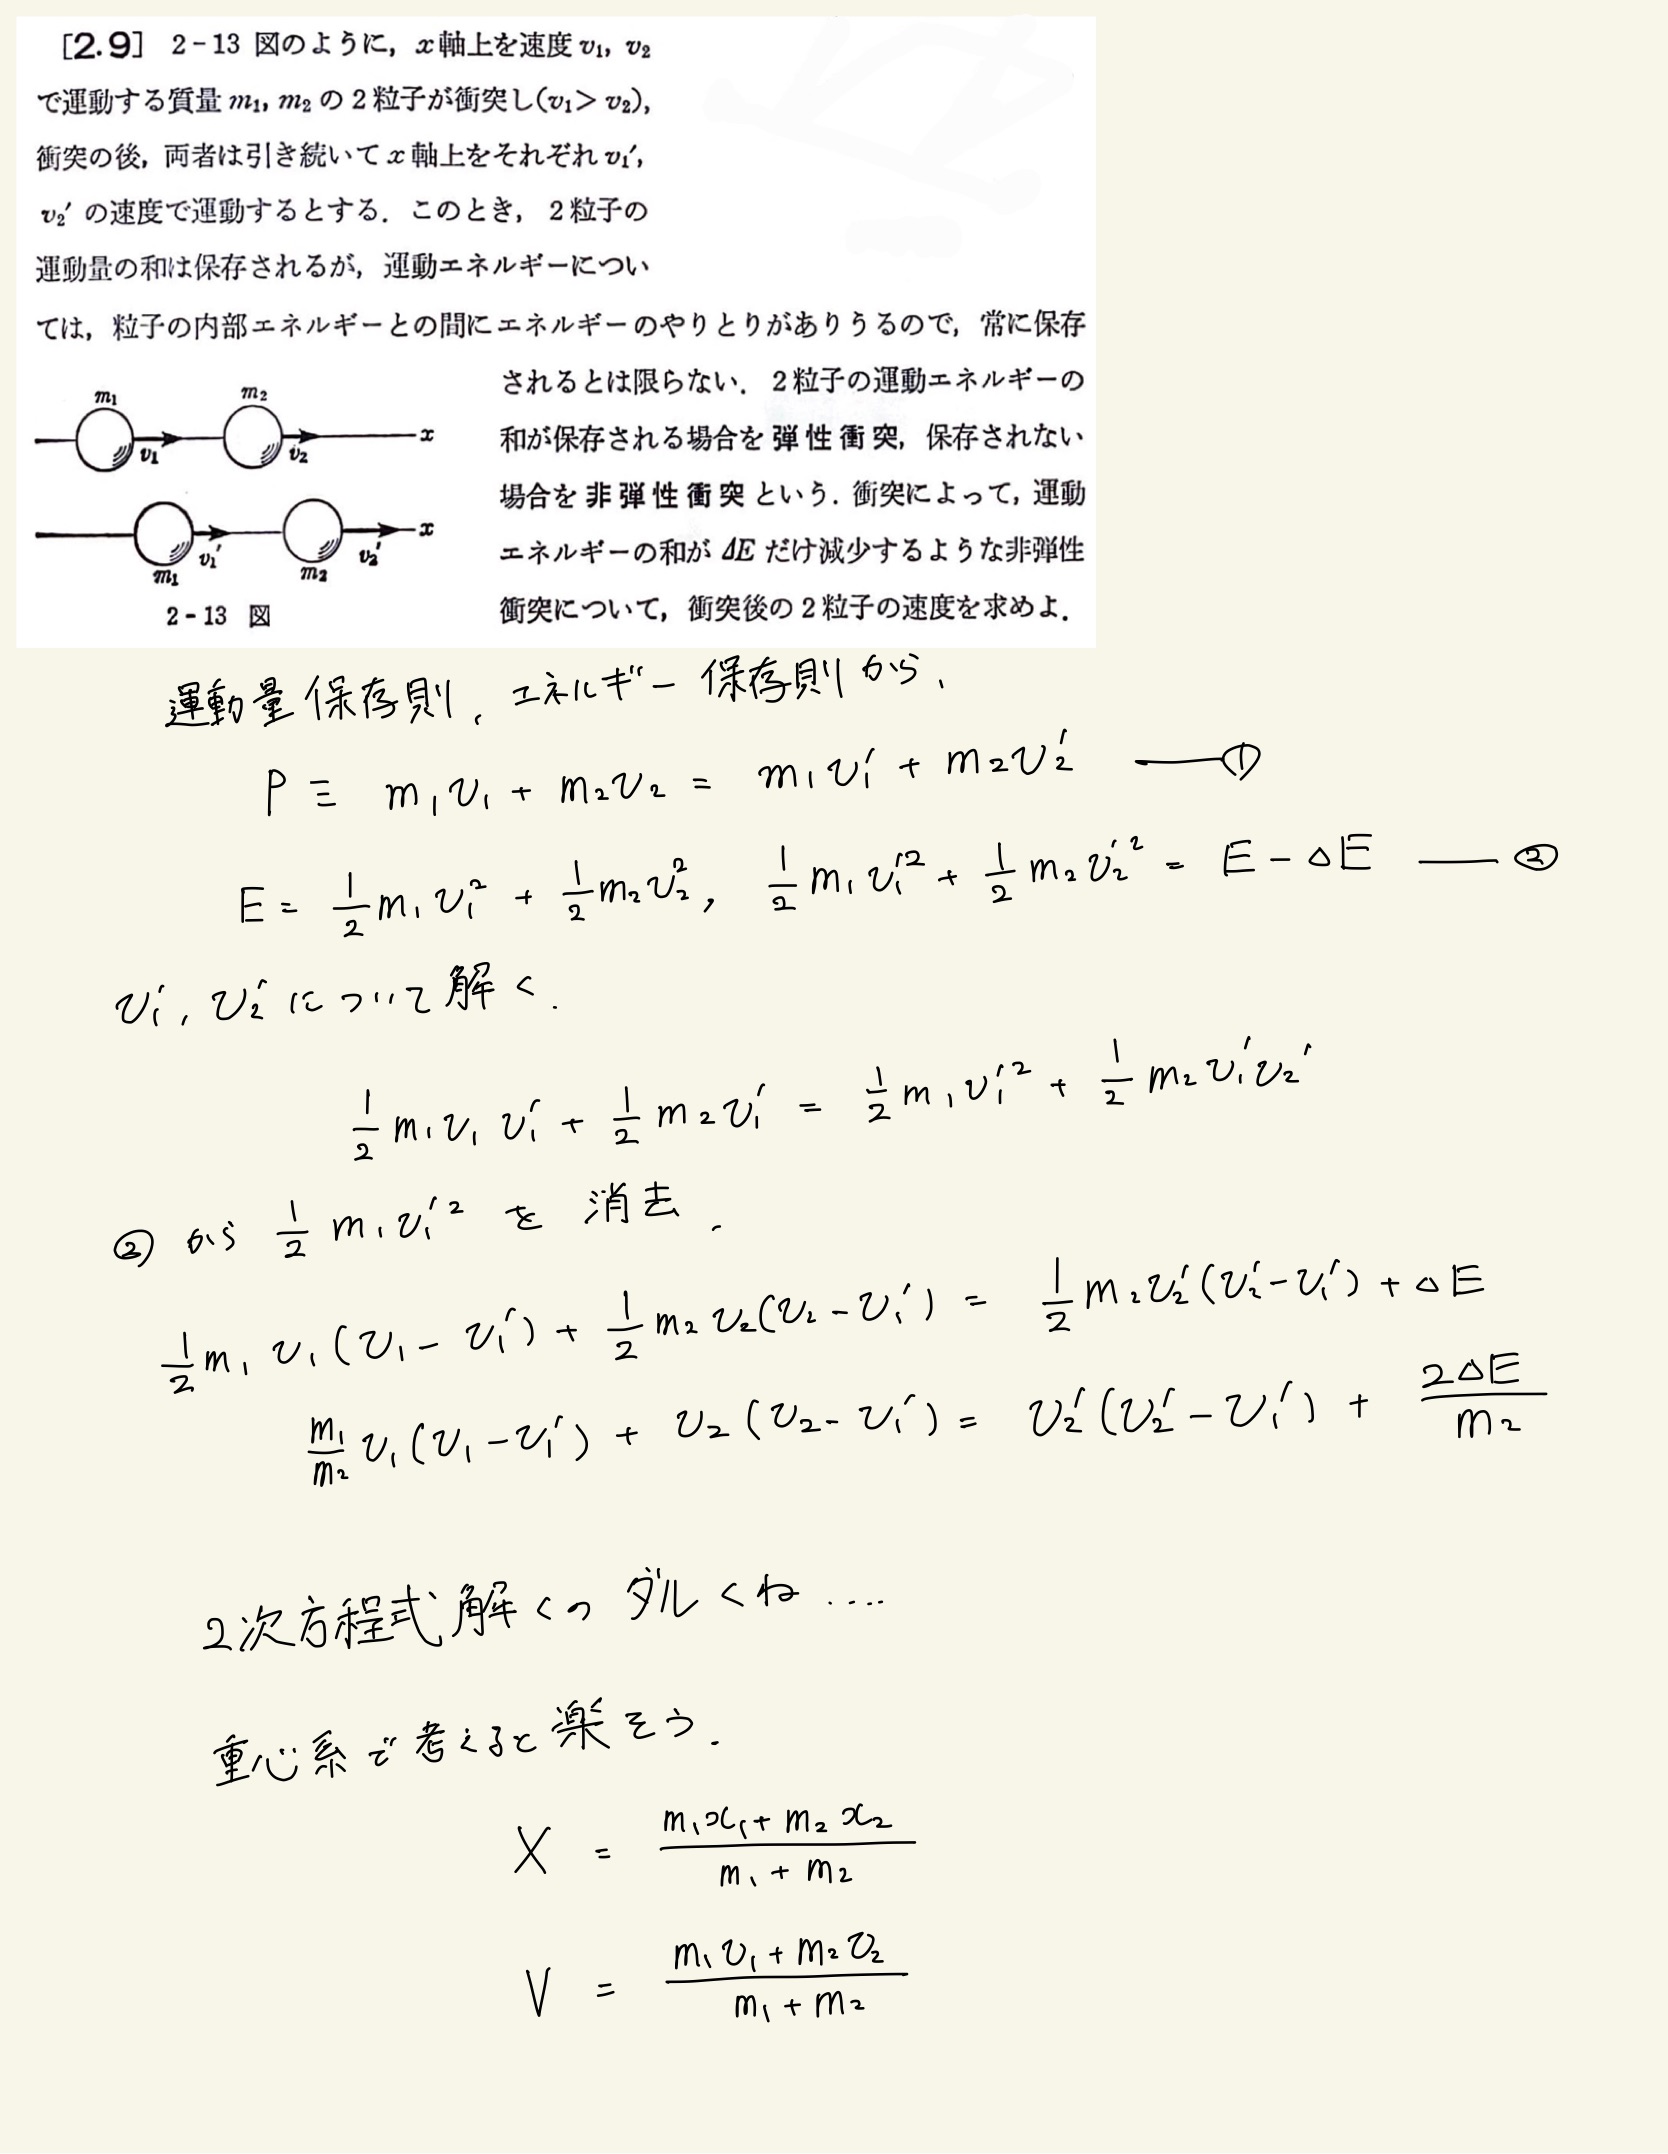 [2.9] 2-13 図のように, x軸上を速度 v₁, v₂
で運動する質量 m₁, m₂ の2粒子が衝突し(v₁> v₂),
衝突の後, 両者は引き続いて x 軸上をそれぞれ v₁′,
v₂′ の速度で運動するとする. このとき, 2粒子の
運動量の和は保存されるが, 運動エネルギーについ
ては, 粒子の内部エネルギーとの間にエネルギーのやりとりがありうるので, 常に保存
されるとは限らない. 2粒子の運動エネルギーの
和が保存される場合を弾性衝突, 保存されない
場合を非弾性衝突という. 衝突によって, 運動
エネルギーの和が ΔE だけ減少するような非弾性
衝突について, 衝突後の2粒子の速度を求めよ.
m₁ m₂
v₁ v₂ x
v₁′ v₂′ x
m₁ m₂
2-13 図
運動量保存則, エネルギー保存則から,
P ≡ m₁v₁ + m₂v₂ = m₁v₁′ + m₂v₂′ ―①
E = 1/2 m₁v₁² + 1/2 m₂v₂², 1/2 m₁v₁′² + 1/2 m₂v₂′² = E - ΔE ―②
v₁′, v₂′ について解く.
1/2 m₁v₁v₁′ + 1/2 m₂v₁′ = 1/2 m₁v₁′² + 1/2 m₂v₁′v₂′
②から 1/2 m₁v₁′² を消去.
1/2 m₁v₁(v₁ - v₁′) + 1/2 m₂v₂(v₂ - v₁′) = 1/2 m₂v₂′(v₂′ - v₁′) + ΔE
m₁/m₂ v₁(v₁ - v₁′) + v₂(v₂ - v₁′) = v₂′(v₂′ - v₁′) + 2ΔE/m₂
2次方程式解くのダルくね....
重心系で考えると楽そう.
X = (m₁x₁ + m₂x₂)/(m₁ + m₂)
V = (m₁v₁ + m₂v₂)/(m₁ + m₂)